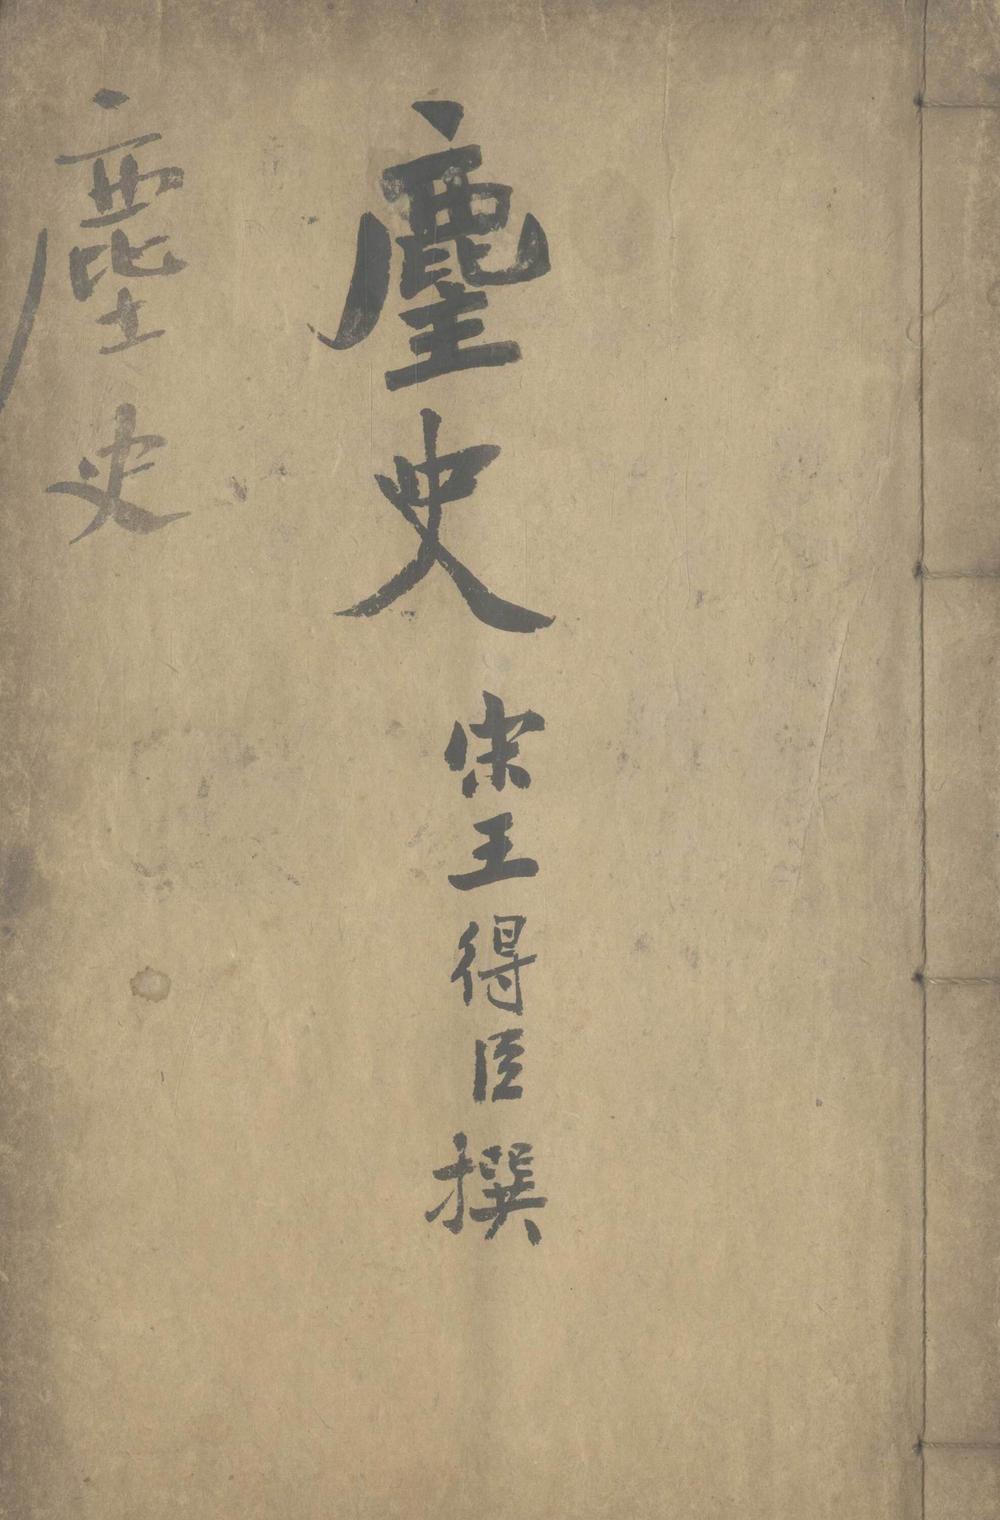 麈史 宋王得臣撰
塵史